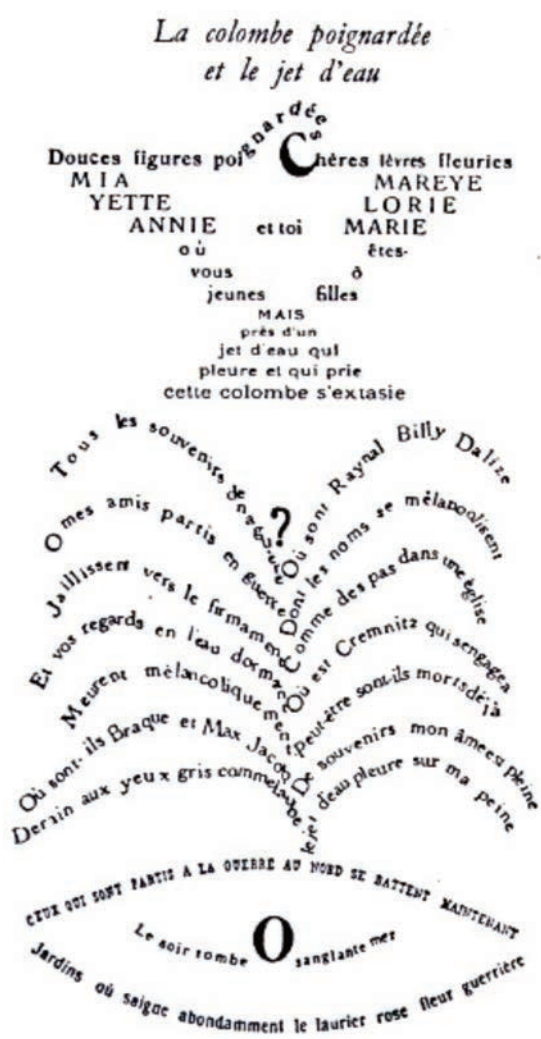 La colombe poignardée
et le jet d'eau
Douces figures poignardées Chères lèvres fleuries
MIA MAREYE
YETTE LORIE
ANNIE et toi MARIE
où êtes-
vous ô
jeunes filles
MAIS
près d'un
jet d'eau qui
pleure et qui prie
cette colombe s'extasie
Tous les souvenirs de naguère
O mes amis partis en guerre
Jaillissent vers le firmament
Et vos regards en l'eau dormant
Meurent mélancoliquement
Où sont-ils Braque et Max Jacob
Derain aux yeux gris comme l'aube
?
Où sont Raynal Billy Dalize
Dont les noms se mélancolisent
Comme des pas dans une église
Où est Cremnitz qui s'engagea
Peut-être sont-ils morts déjà
De souvenirs mon âme est pleine
Le jet d'eau pleure sur ma peine
CEUX QUI SONT PARTIS A LA GUERRE AU NORD SE BATTENT MAINTENANT
Le soir tombe O sanglante mer
Jardins où saigne abondamment le laurier rose fleur guerrière